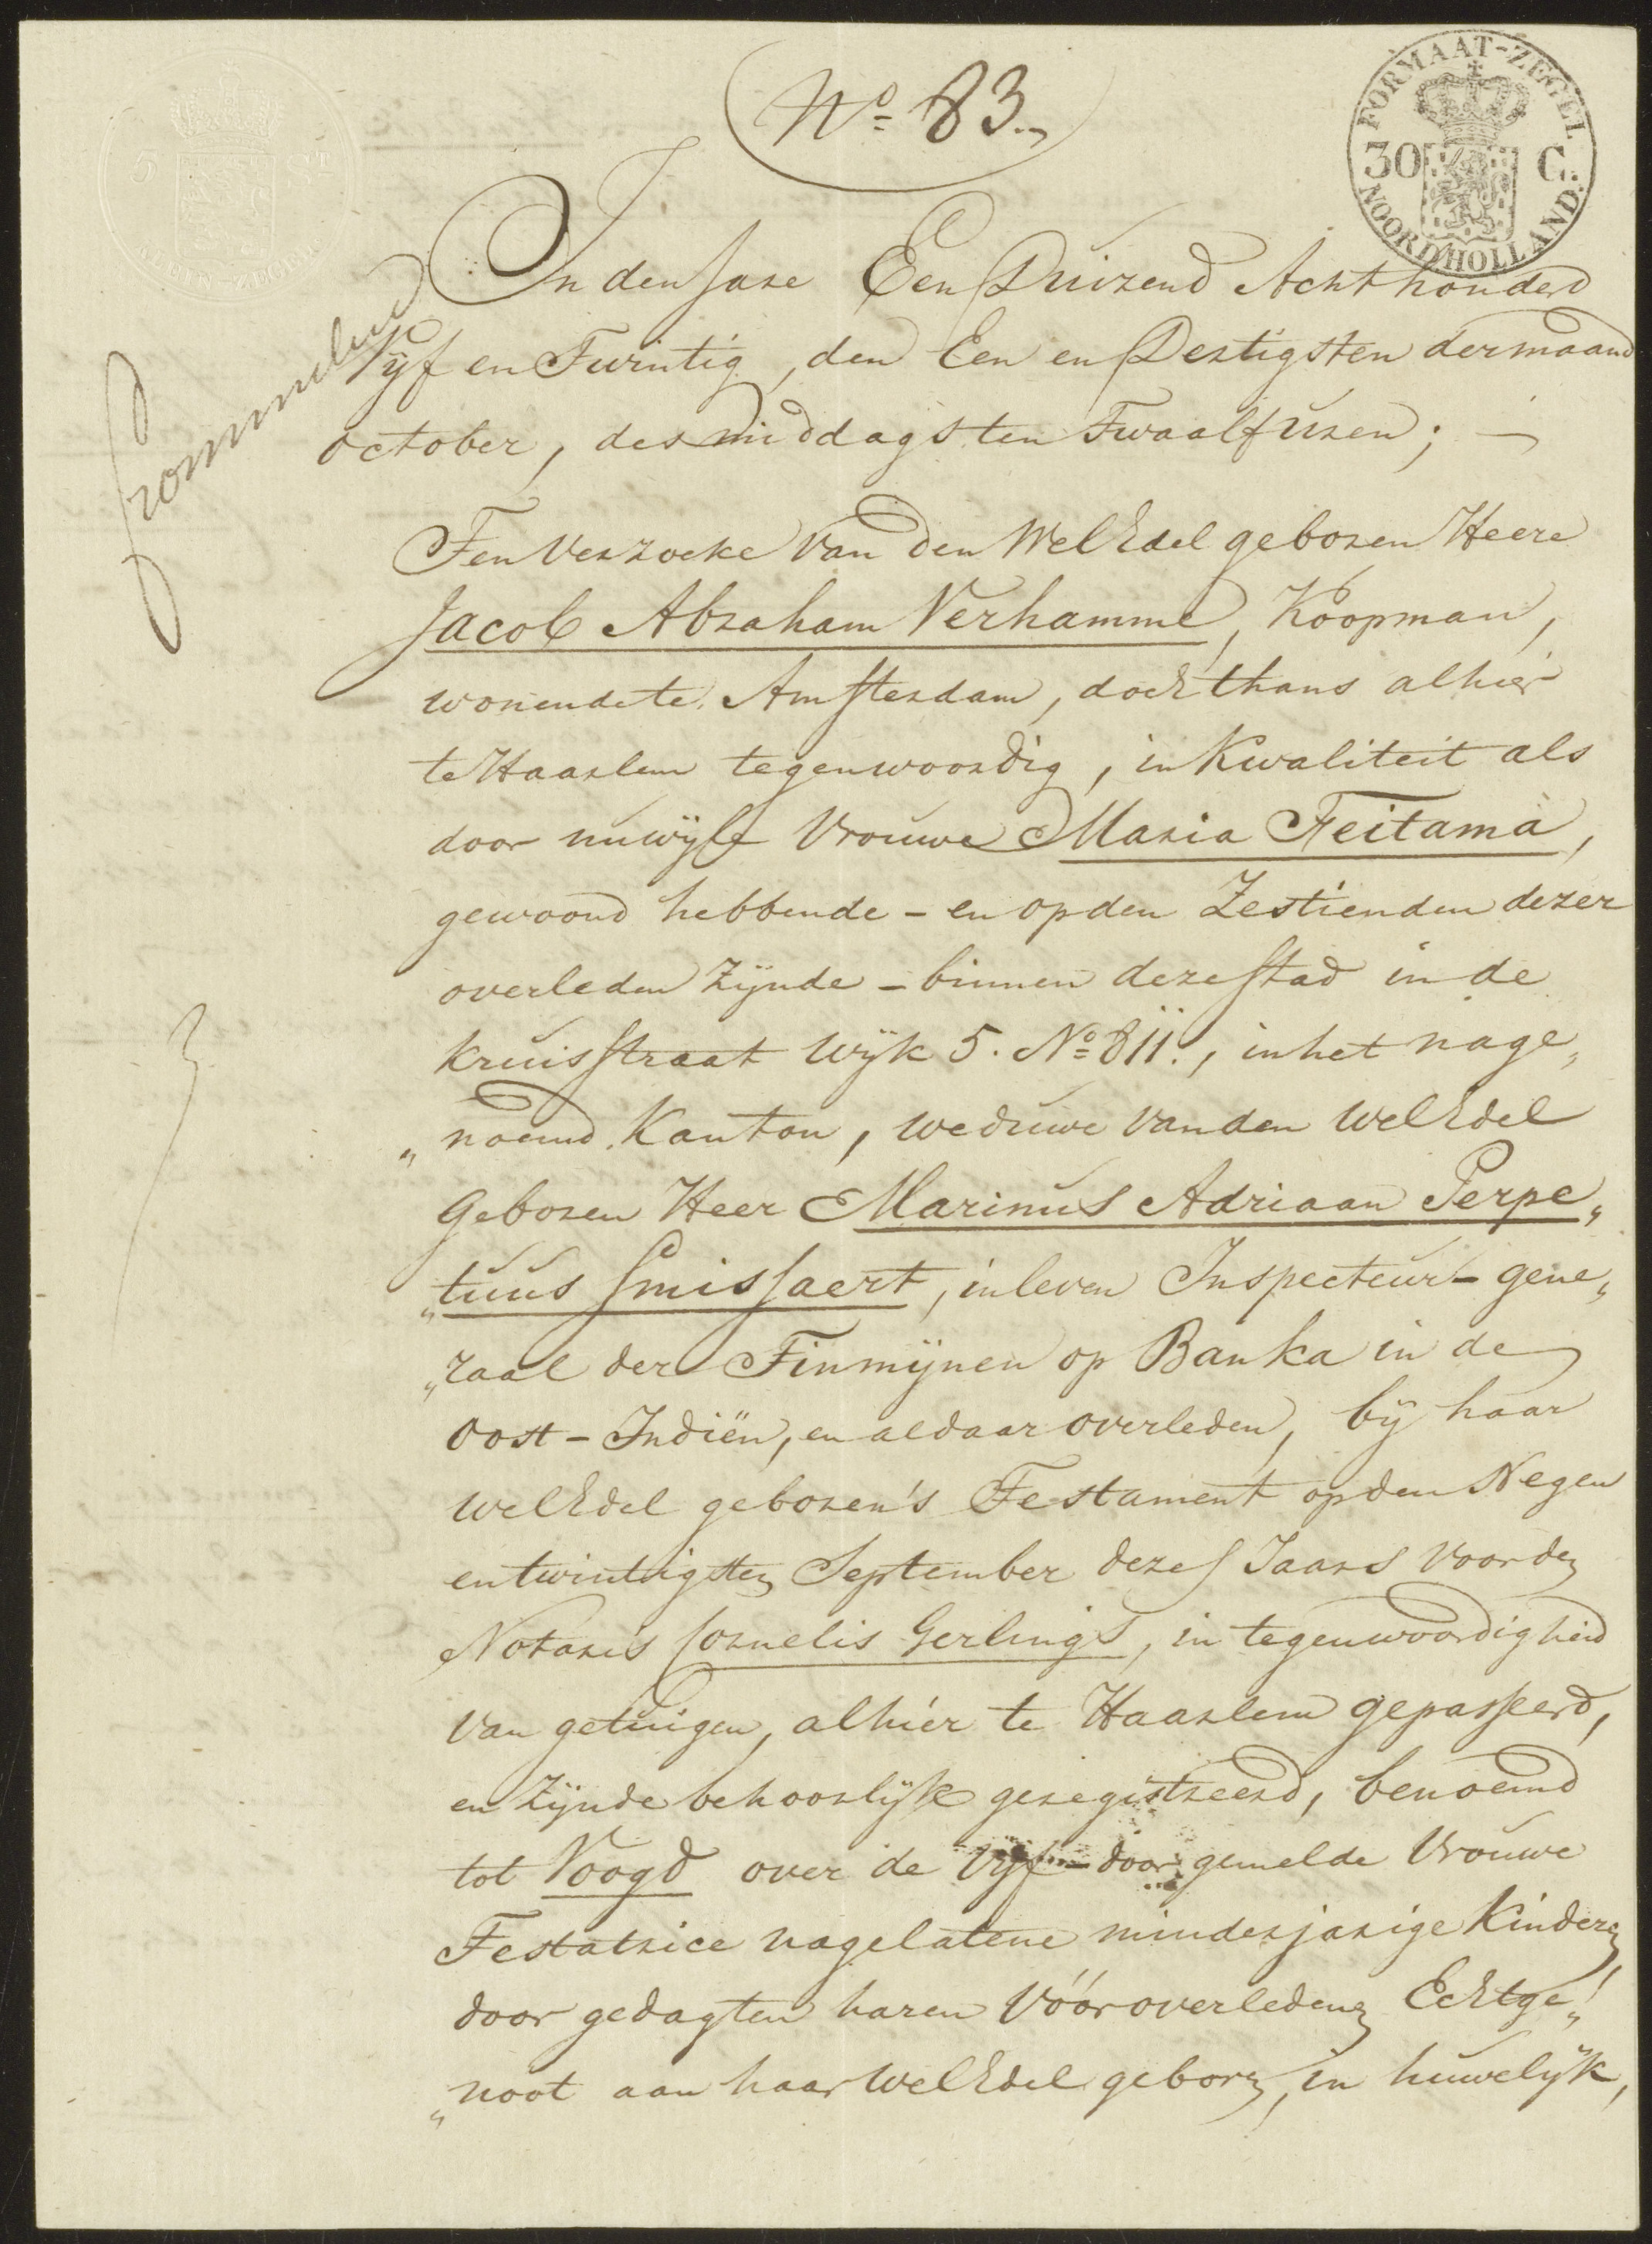 Nº 83.
FORMAAT-ZEGEL
30 C.
NOORD HOLLAND.
In den Jare Een Duizend Acht honderd
Vijf en Twintig, den Een en Dertigsten der maand
october, des middags ten Twaalf uren; —
Ten verzoeke van den WelEdel geboren Heere
Jacob Abraham Verhamme, Koopman,
wonende te Amsterdam, doch thans alhier
te Haarlem tegenwoordig, in Kwaliteit als
door nu wijle Vrouwe Maria Feitama,
gewoond hebbende - en op den Zestienden dezer
overleden zijnde - binnen deze stad in de
kruisstraat wijk 5. Nº 811., in het nage„
„noemd Kanton, weduwe van den WelEdel
Geboren Heer Marinus Adriaan Perpe„
„tuus Smissaert, in leven Inspecteur-gene„
„raal der Tinmijnen op Banka in de
Oost-Indiën, en aldaar overleden, bij haar
WelEdel geboren's Testament op den Negen
en twintigsten September dezes Jaars voor den
Notaris Cornelis Gerlings, in tegenwoordigheid
van getuigen, alhier te Haarlem gepasseerd,
en zijnde behoorlijk geregistreerd, benoemd
tot Voogd over de Vijf - door gemelde Vrouwe
Testatrice nagelatene minderjarige Kinderen,
door gedagten haren Vóóroverleden Echtge„
„noot aan haar WelEdel geboren, in huwelijk,